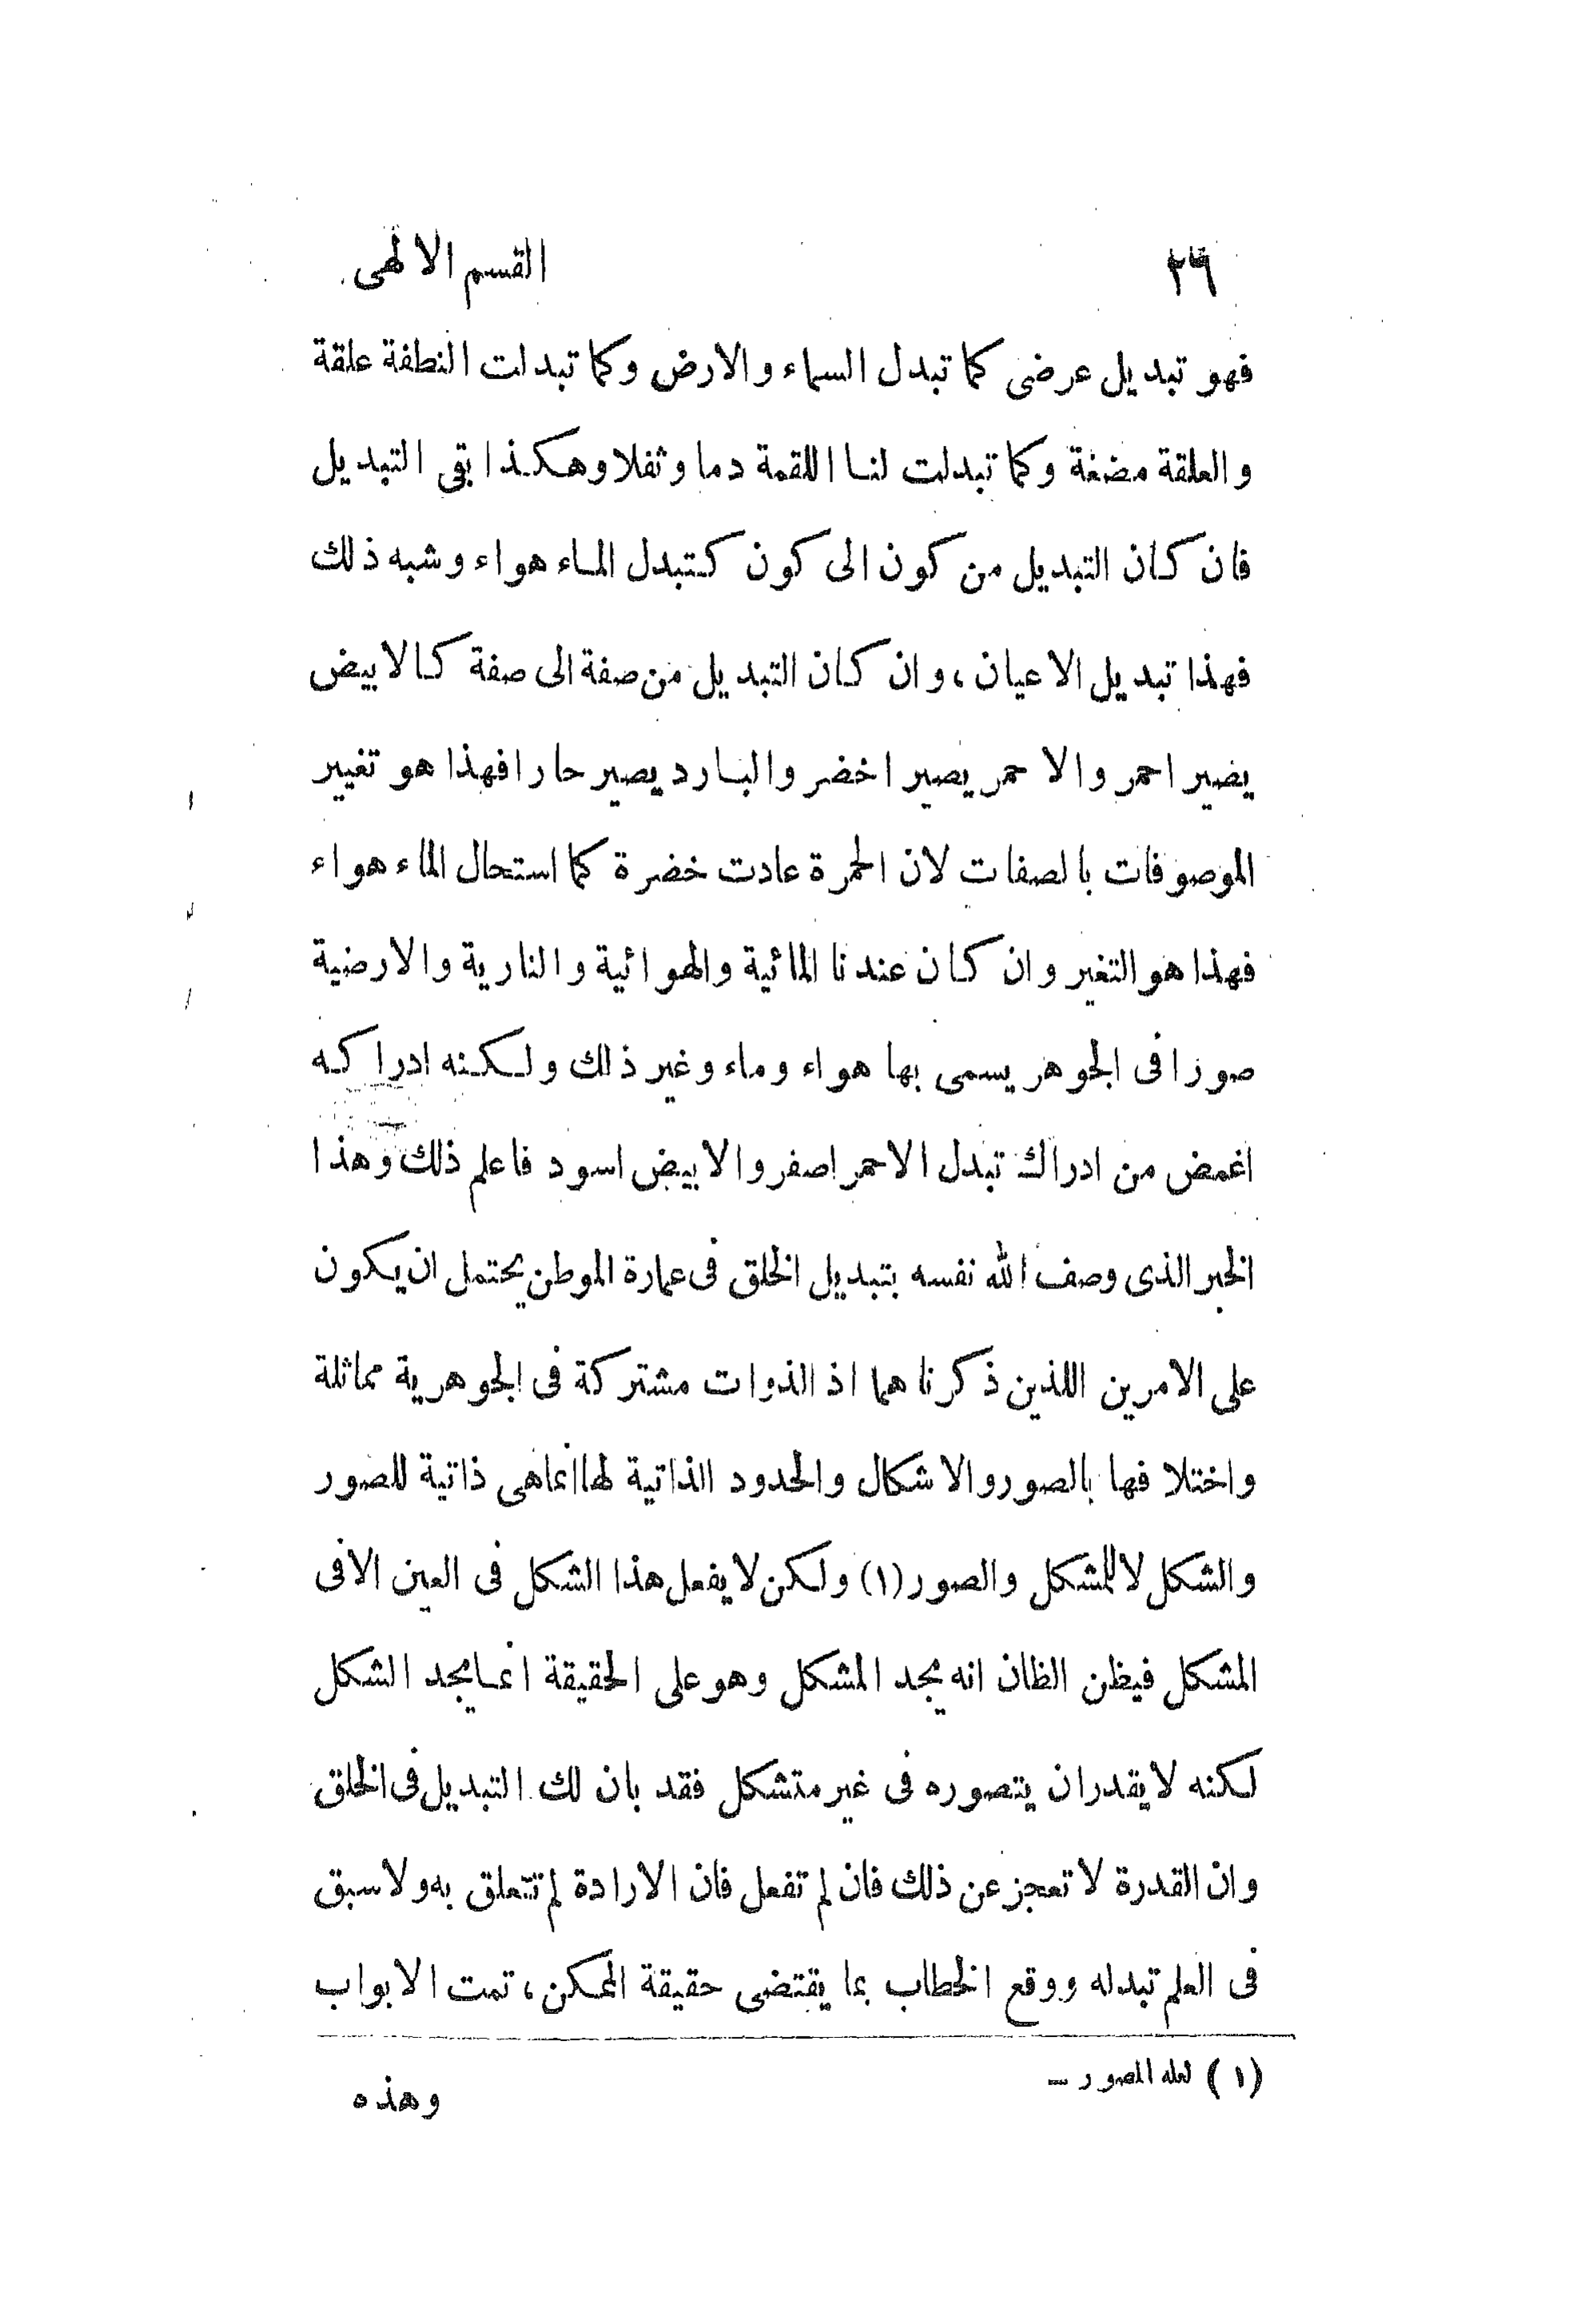 القسم الالهى
فهو تبديل عرضى كما تبدل السماء والارض وكما تبدلت النطفة علقة
والعلقة مضغة وكما تبدلت لنا اللقمة دما وثفلا وهكذا بقى التبديل
فان كان التبديل من كون الى كون كتبدل الماء هواء وشبه ذلك
فهذا تبديل الاعيان، وان كان التبديل من صفة الى صفة كالابيض
يصير احمر والاحمر يصير اخضر والبارد يصير حارا فهذا هو تغيير
الموصوفات بالصفات لان الحمرة عادت خضرة كما استحال الماء هواء
فهذا هو التغير وان كان عندنا المائية والهوائية والنارية والارضية
صورا فى الجوهر يسمى بها هواء وماء وغير ذلك ولكنه ادراكه
اغمض من ادراك تبدل الاحمر اصفر والابيض اسود فاعلم ذلك وهذا
الخبر الذى وصف الله نفسه بتبديل الخلق فى عمارة الموطن يحتمل ان يكون
على الامرين اللذين ذكرناهما اذ الذوات مشتركة فى الجوهرية مماثلة
واختلافها بالصور والاشكال والحدود الذاتية لها انما هى ذاتية للصور
والشكل لا للمشكل والصور (١) ولكن لا يفعل هذا الشكل فى العين الا فى
المشكل فيظن الظان انه يجد المشكل وهو على الحقيقة انما يجد الشكل
لكنه لا يقدر ان يتصوره فى غير متشكل فقد بان لك التبديل فى الخلق
وان القدرة لا تعجز عن ذلك فان لم تفعل فان الارادة لم تتعلق به ولا سبق
فى العلم تبدله ووقع الخطاب بما يقتضى حقيقة الممكن، تمت الابواب
(١) لعله المصور –
وهذه